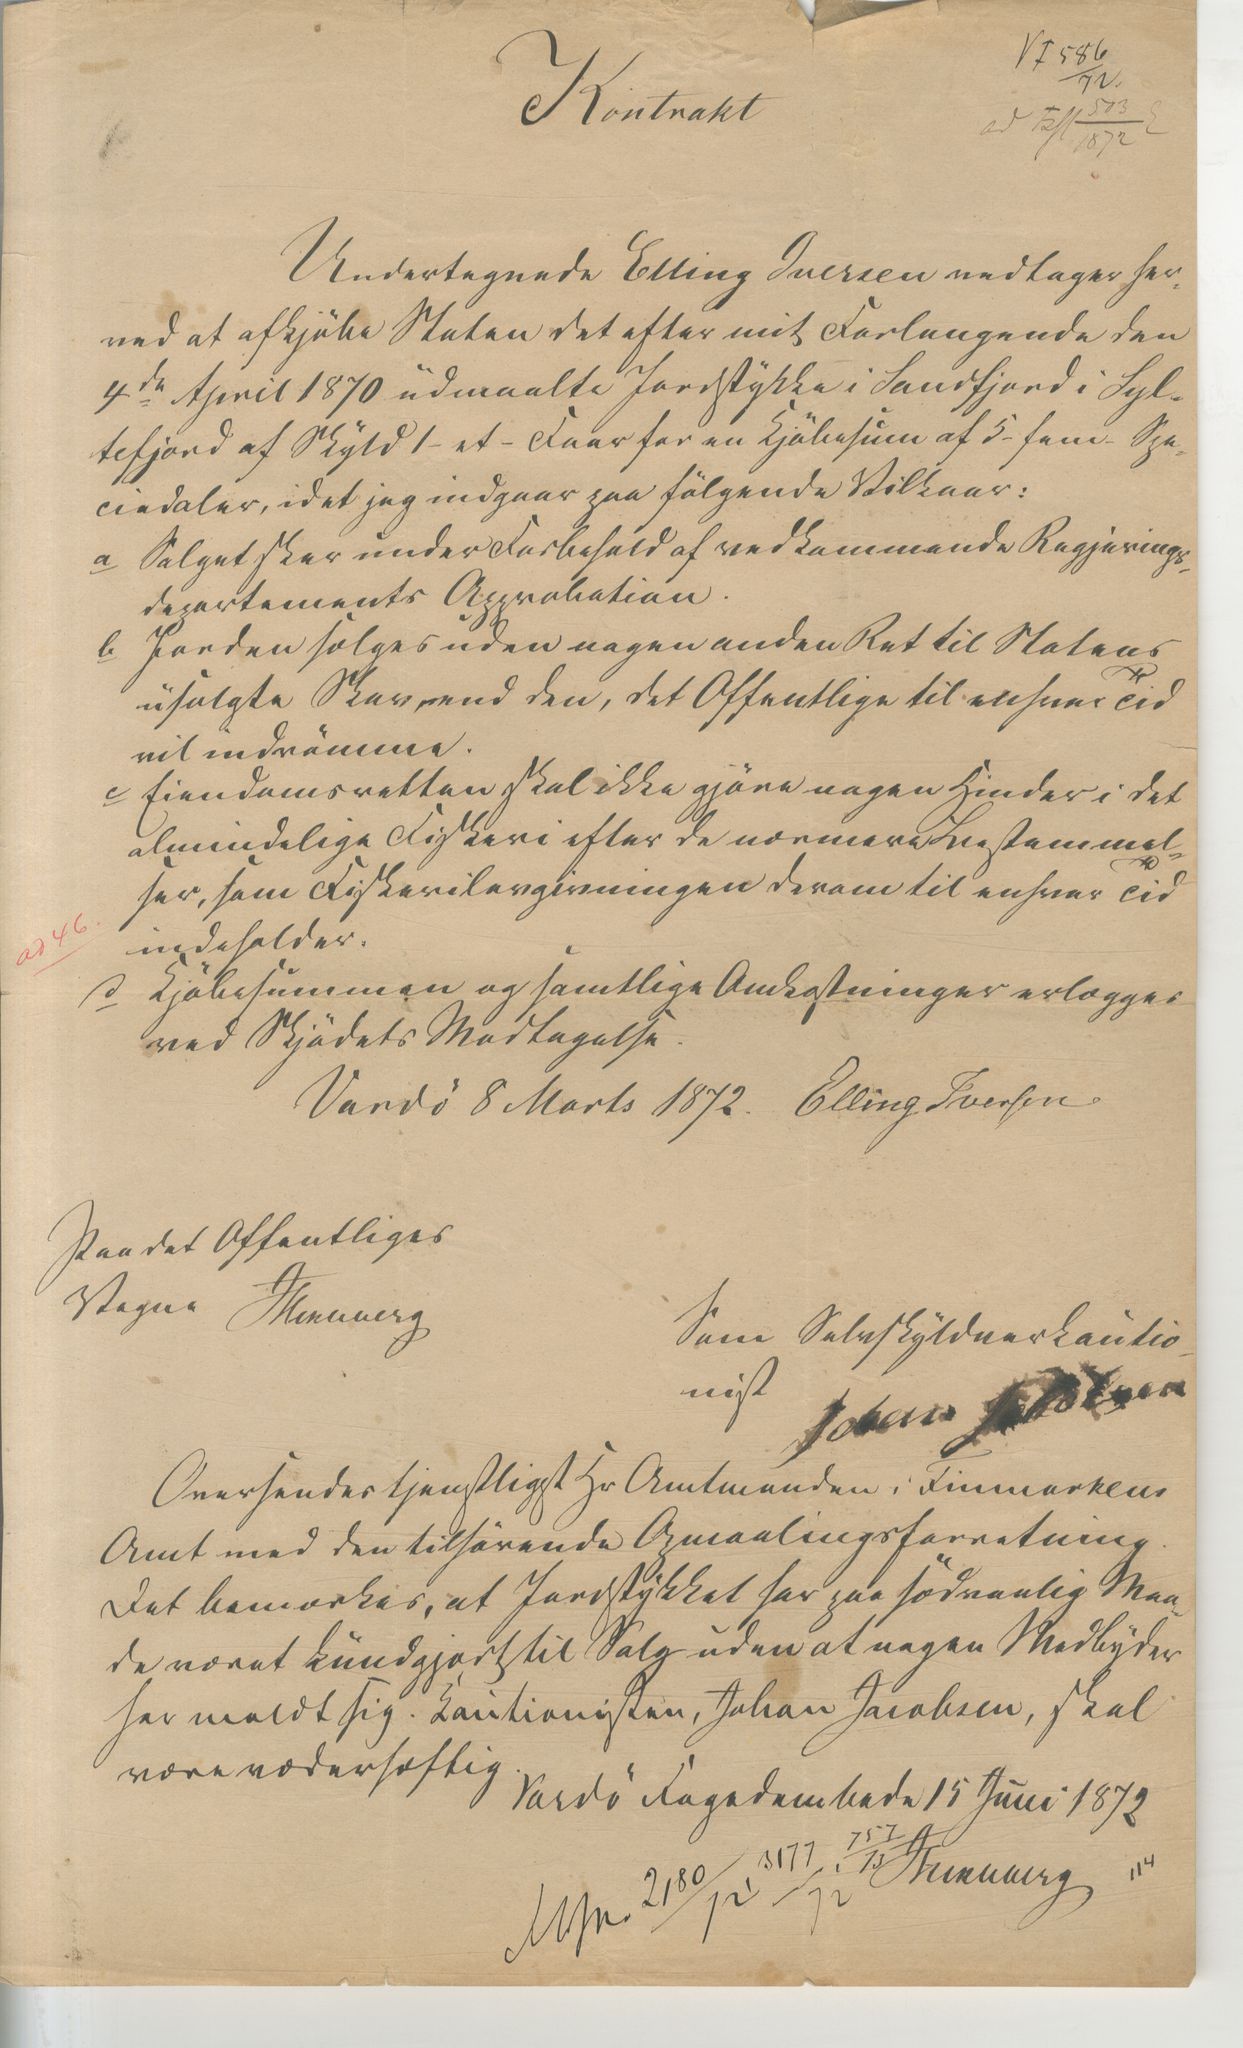 VI 586
72.
ad 503
1872
Kontrakt
Undertegnede Elling Iversen vedtager her-
ved at afkjøbe Staten det efter mit Forlangende den
4de April 1870 udmaalte Jordstykke i Sandfjord i Syl-
tefjord af Skyld 1 - et - Faar for en Kjøbesum af 5 - fem - Spe-
ciedaler, idet jeg indgaar paa følgende Vilkaar:
a Salget sker under Forbehold af vedkommende Regjerings-
departements Approbation.
b Jorden sælges uden nogen anden Ret til Statens
usolgte Skov, end den, det Offentlige til enhver Tid
vil indrømme.
c Eiendomsretten skal ikke gjøre nogen Hinder i det
almindelige Fiskeri efter de nærmere Bestemmel-
ser, som Fiskerilovgivningen derom til enhver Tid
indeholder.
ad 46.
d Kjøbesummen og samtlige Omkostninger erlægges
ved Skjødets Modtagelse.
Vardö 8 Marts 1872. Elling Iversen.
Paa det Offentliges
Vegne
Som Selvskyldnerkautio-
nist
Johan Jacobsen
Oversendes tjenstligst Hr Amtmanden i Finmarkens
Amt med den tilhørende Opmaalingsforretning.
Det bemærkes, at Jordstykket har paa sødvanlig Maa-
de været kundgjort til Salg uden at nogen Medbyder
har meldt sig. Kautionisten, Johan Jacobsen, skal
være vederhæftig.
Vardö Fogedembede 15 Juni 1872
2180/72 3177/72 757/73
114